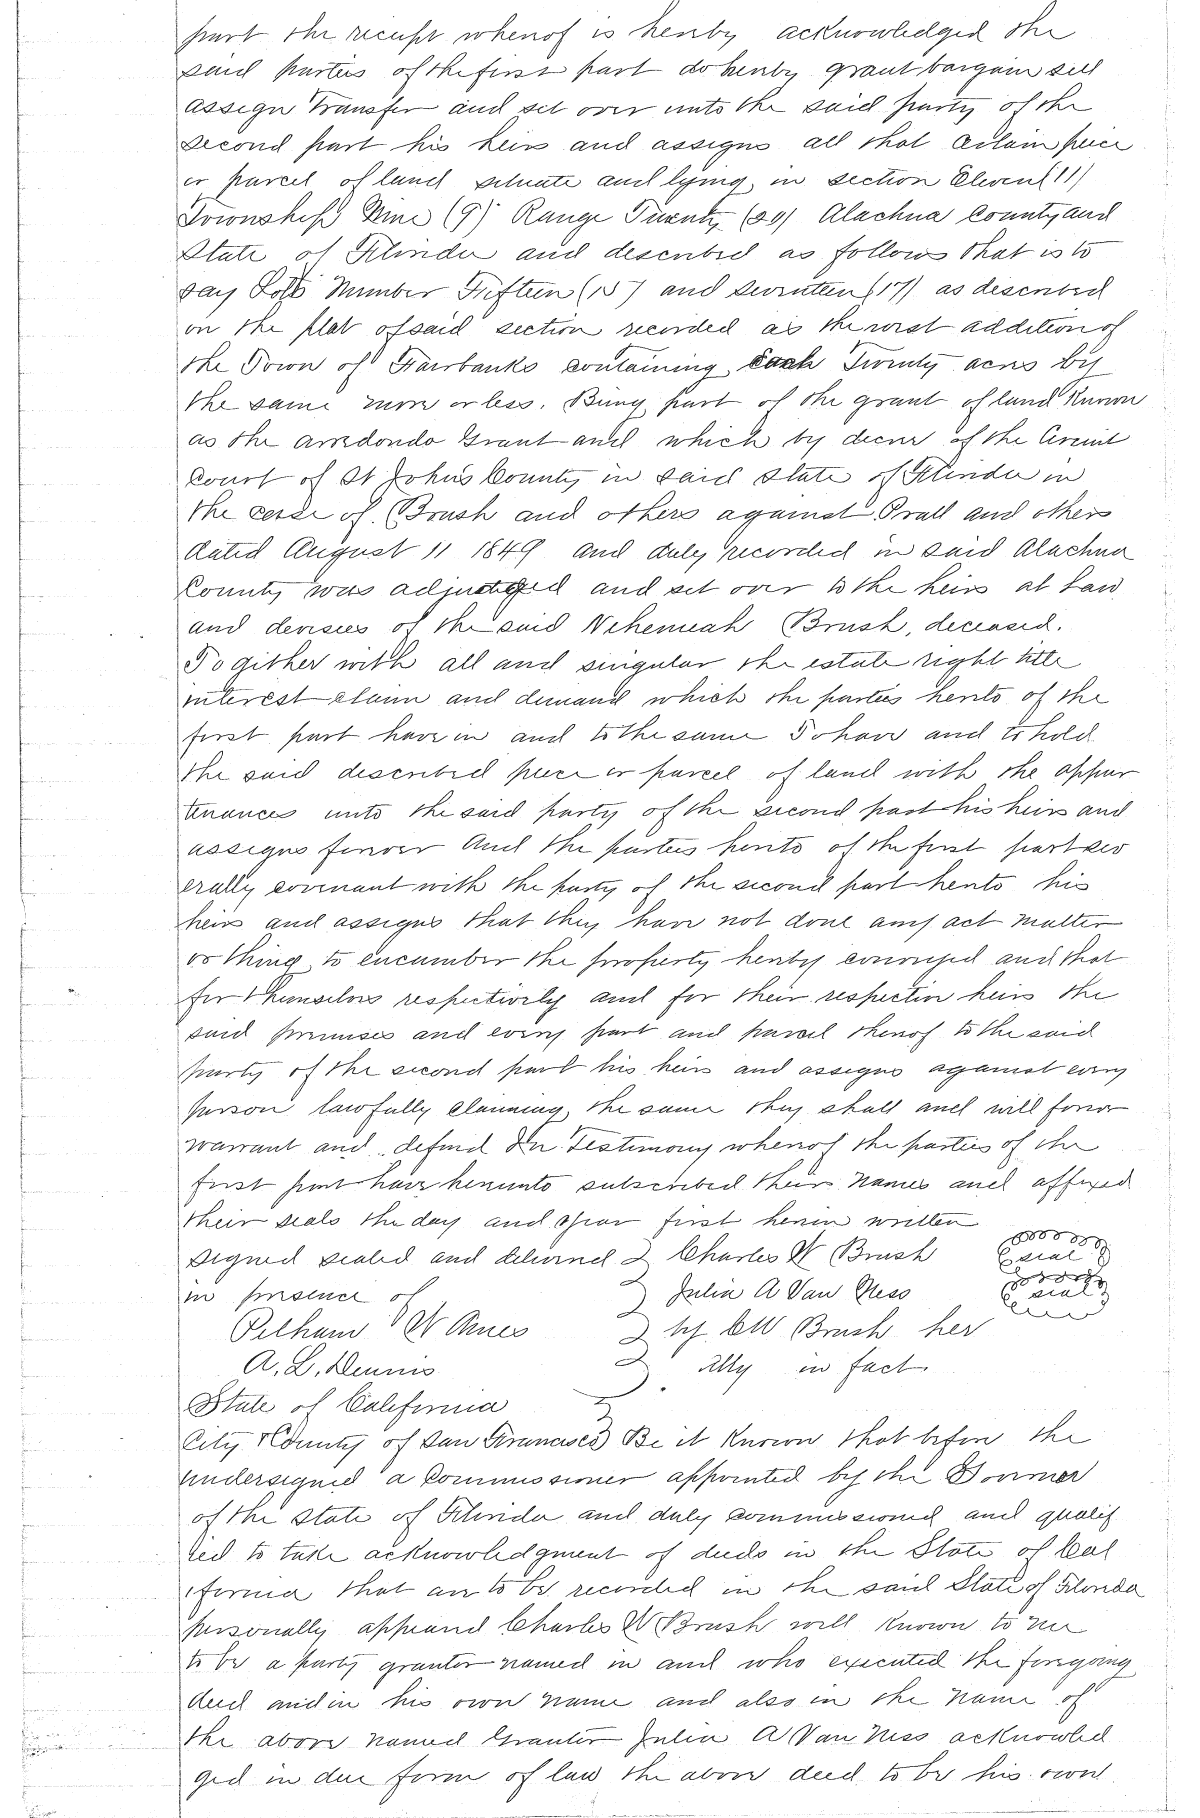 part the receipt whereof is hereby acknowledged the
said parties of the first part do hereby grant bargain sell
assign transfer and set over unto the said party of the
second part his heirs and assigns all that certain piece
or parcel of land situate and lying in section Eleven (11)
Township Nine (9) Range Twenty (20) Alachua County and
State of Florida and described as follows that is to
say Lots Number Fifteen (15) and Seventeen (17) as described
on the plat of said section recorded as the west addition of
the Town of Fairbanks containing Each Twenty acres be
the same more or less. Being part of the grant of land Known
as the arredondo Grant and which by decree of the Circuit
Court of St Johns County in said State of Florida in
the case of Brush and others against Prall and others
dated August 11 1849 and duly recorded in said Alachua
County was adjudged and set over to the heirs at Law
and devisees of the said Nehemiah Brush, deceased.
Togither with all and singular the estate right title
interest claim and demand which the parties hereto of the
first part have in and to the same To have and to hold
the said described piece or parcel of land with the appur
tenances unto the said party of the second part his heirs and
assigns forever And the parties hereto of the first part sev
erally covenant with the party of the second part hereto his
heirs and assigns that they have not done any act matter
or thing to encumber the property hereby conveyed and that
for themselves respectively and for their respective heirs the
said premises and every part and parcel thereof to the said
party of the second part his heirs and assigns against every
person lawfully claiming the same they shall and will forever
warrant and defend In Testimony whereof the parties of the
first part have hereunto subscribed their names and affixed
their seals the day and year first herein written
Signed sealed and delivered Charles W Brush seal
in presence of Julia A Van Ness seal
Pelham W Ames by CW Brush her
A. L. Dennis Atty in fact.
State of California
City & County of San Francisco Be it Known that before the
undersigned a Commissioner appointed by the Governor
of the State of Florida and duly commissioned and qualif
ied to take acknowledgment of deeds in the State of Cal
ifornia that are to be recorded in the said State of Florida
personally appeared Charles W Brush well known to me
to be a party grantor named in and who executed the foregoing
deed and in his own name and also in the name of
the above named Grantor Julia A Van Ness acknowled
ged in due form of law the above deed to be his own